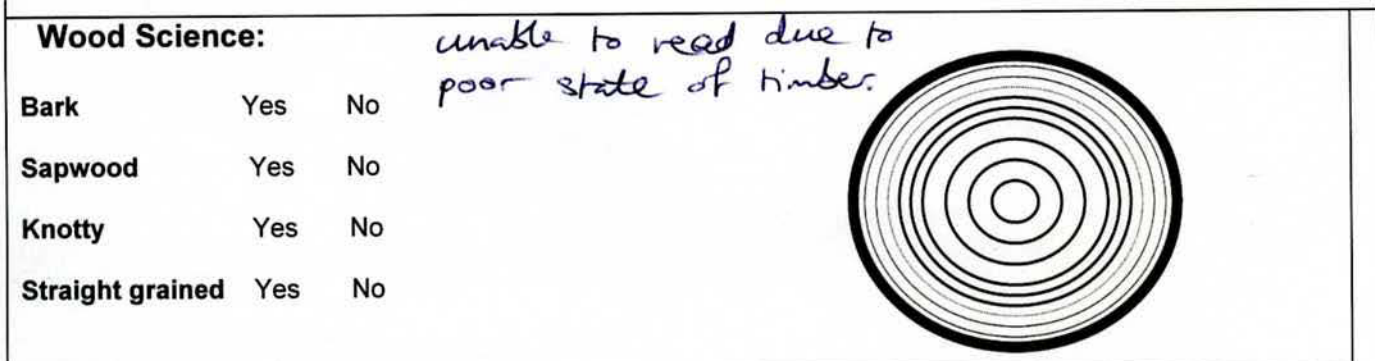 Wood Science:
unable to read due to
poor state of timber.
Bark Yes No
Sapwood Yes No
Knotty Yes No
Straight grained Yes No